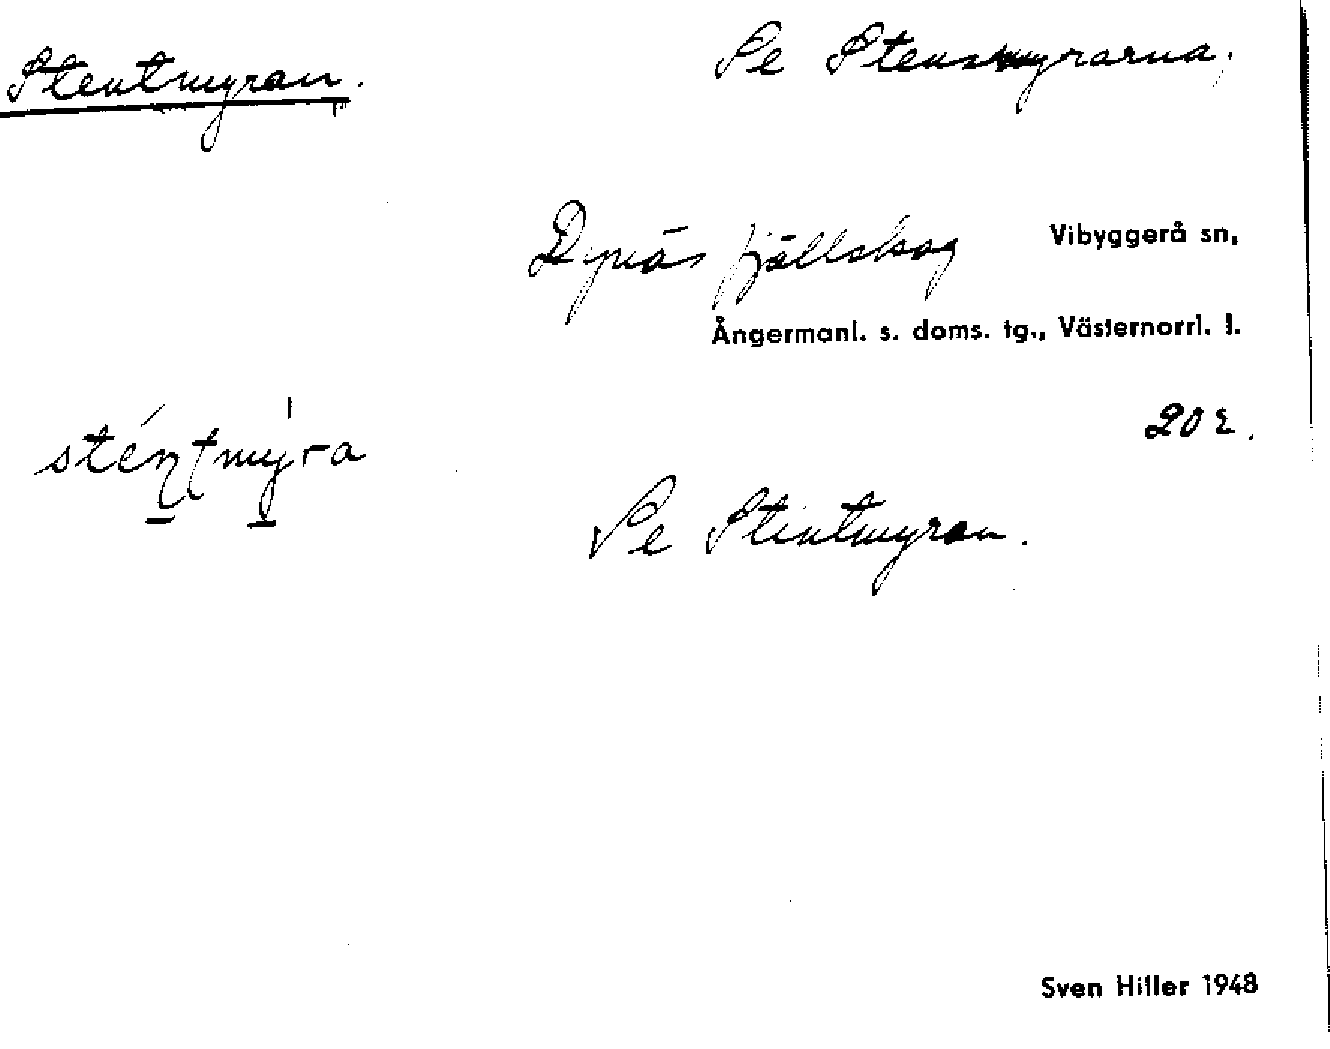 Stentmyran. Se Stensmyrarna,
Dynäs fjällskog Vibyggerå sn,
Ångermanl. s. doms. tg., Västernorrl. l.
sténtmy̍ra 202.
Se Stintmyran.
Sven Hiller 1948